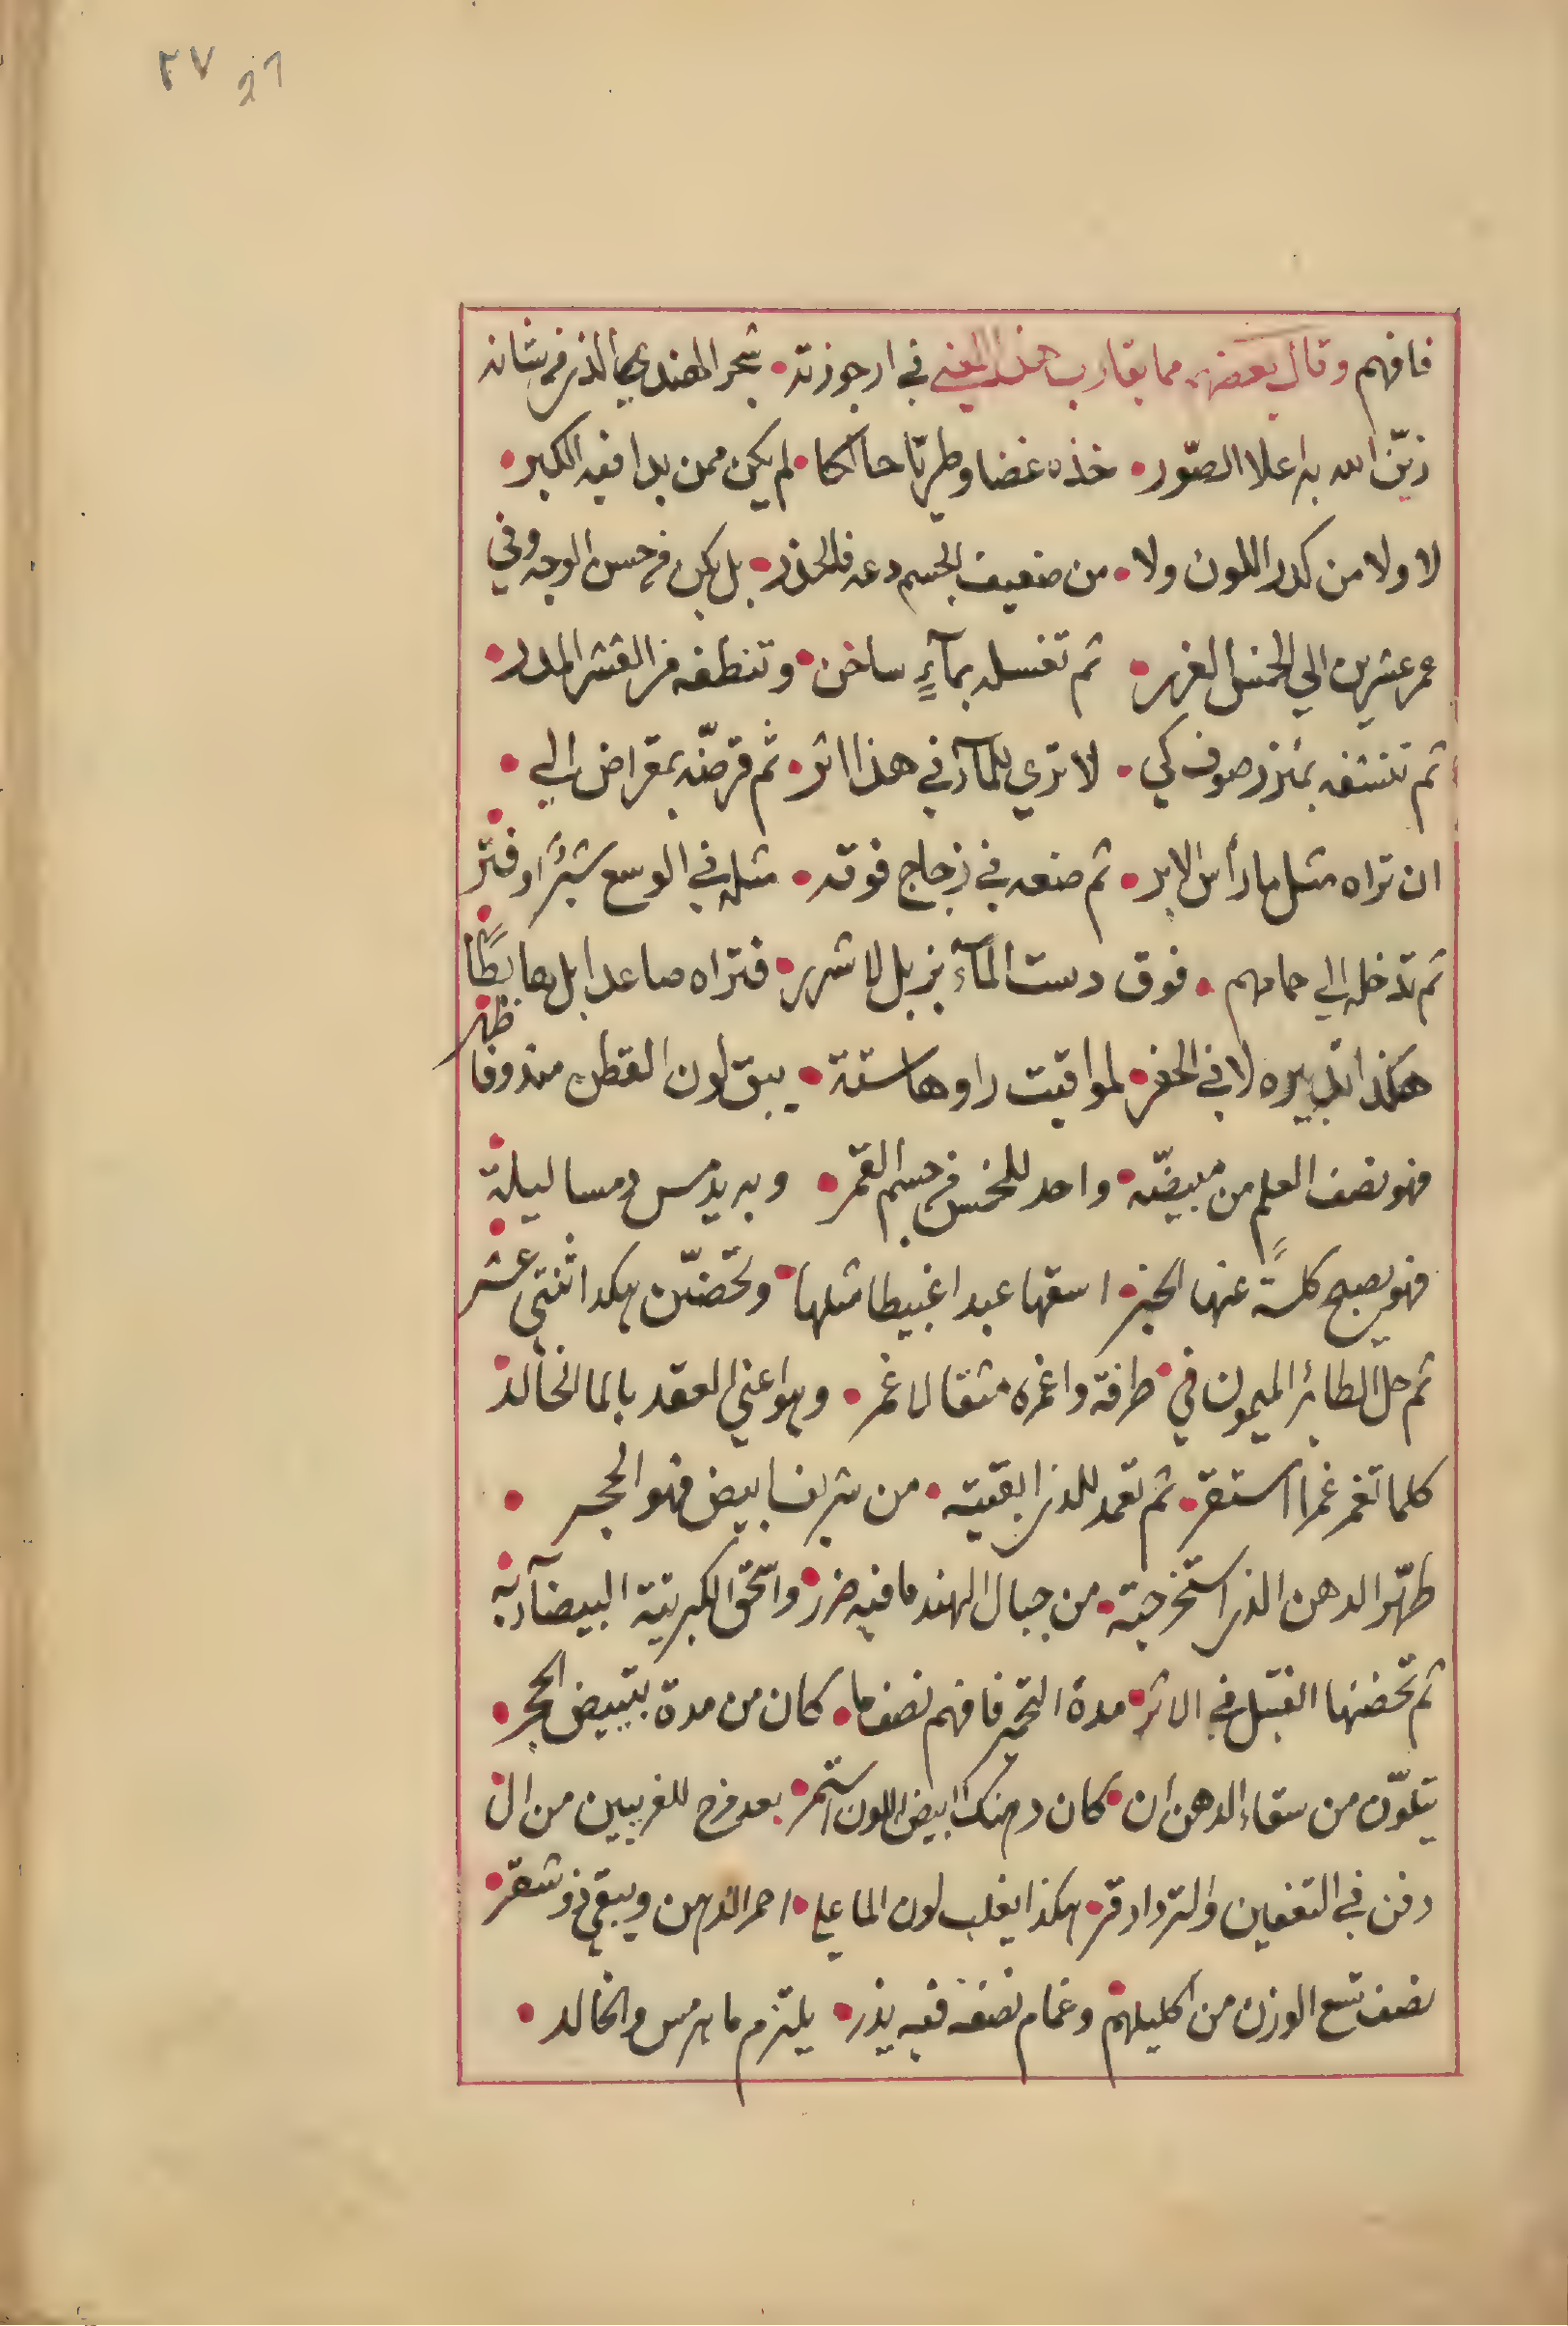 ٢٧ 27
فافهم وقال بعضهم مما يقارب هذا المعني في ارجوزته • شجر الهندي الذي في شانه
زيّن الله به اعلا الصّور • خذه غضا وطريّا حالكا • لم يكن ممن بدا فيه الكبر •
لا ولا من كدر اللون ولا • من ضعيف الجسم دعه فالحذر • بل يكن في حسن الوجه وفي
عمر عشرين الي الخمس الغرر • ثم تغسله بمآءٍ ساخن • وتنظفه من القشر المدر •
ثم تنشفه بمئزر صوف كي • لا تري للمآء في هذا اثر • ثم قرضّه بمقراض الي •
ان تراه مثل ما رأس الابر • ثم ضعه في زجاج فوقه • مثله في الوسع شبرًا او فتر •
ثم تدخله الي حمامهم • فوق دست المآء بزبل لا شرر • فتراه صاعدا بل هابطًا •
هكذا تدبيره لا في الحفر • لمواقيت راوها ستة • يبق لون القطن مندوفا ظهر
فهو نصف العلم من مبيضّه • واحد للخمس في جسم القمر • وبه يدمس ليلة •
فهو يصبح كلسًة عنها الخبر • اسقها عبدا غبيطا مثلها • وتحضّن هكدا اثنتي عشر •
ثم حل الطاير الميمون في • طرافة واغمره مثقالا غمر • وهو اعني العقد بالما الخالد •
كلما تغمر غمرا استقر • ثم تعمد للذي ابقيته • من شريف ابيض فهو الحجر •
طهّر الدهن الذي استخرجته • من جبال الهند ما فيه ضرر • واسحق الكبريتة البيضآء به •
ثم تحضنها القتيل في الاثر • مدة التحمير فافهم نصف ما • كان من مدة تبييض الحجر •
يتلوّن من سقاء الدهن ان • كان دهنك ابيض اللون استمر • بعد فرخ للغريبين من ال •
دفن في التعفين والترداد قر • هكذا يغلب لون الما علي • احمر الدهن ويبقي ذو شقر •
نصف تسع الوزن من اكليلهم • وتمام نصفه فيه يذر • يلتزم ما هرمس والخالد •